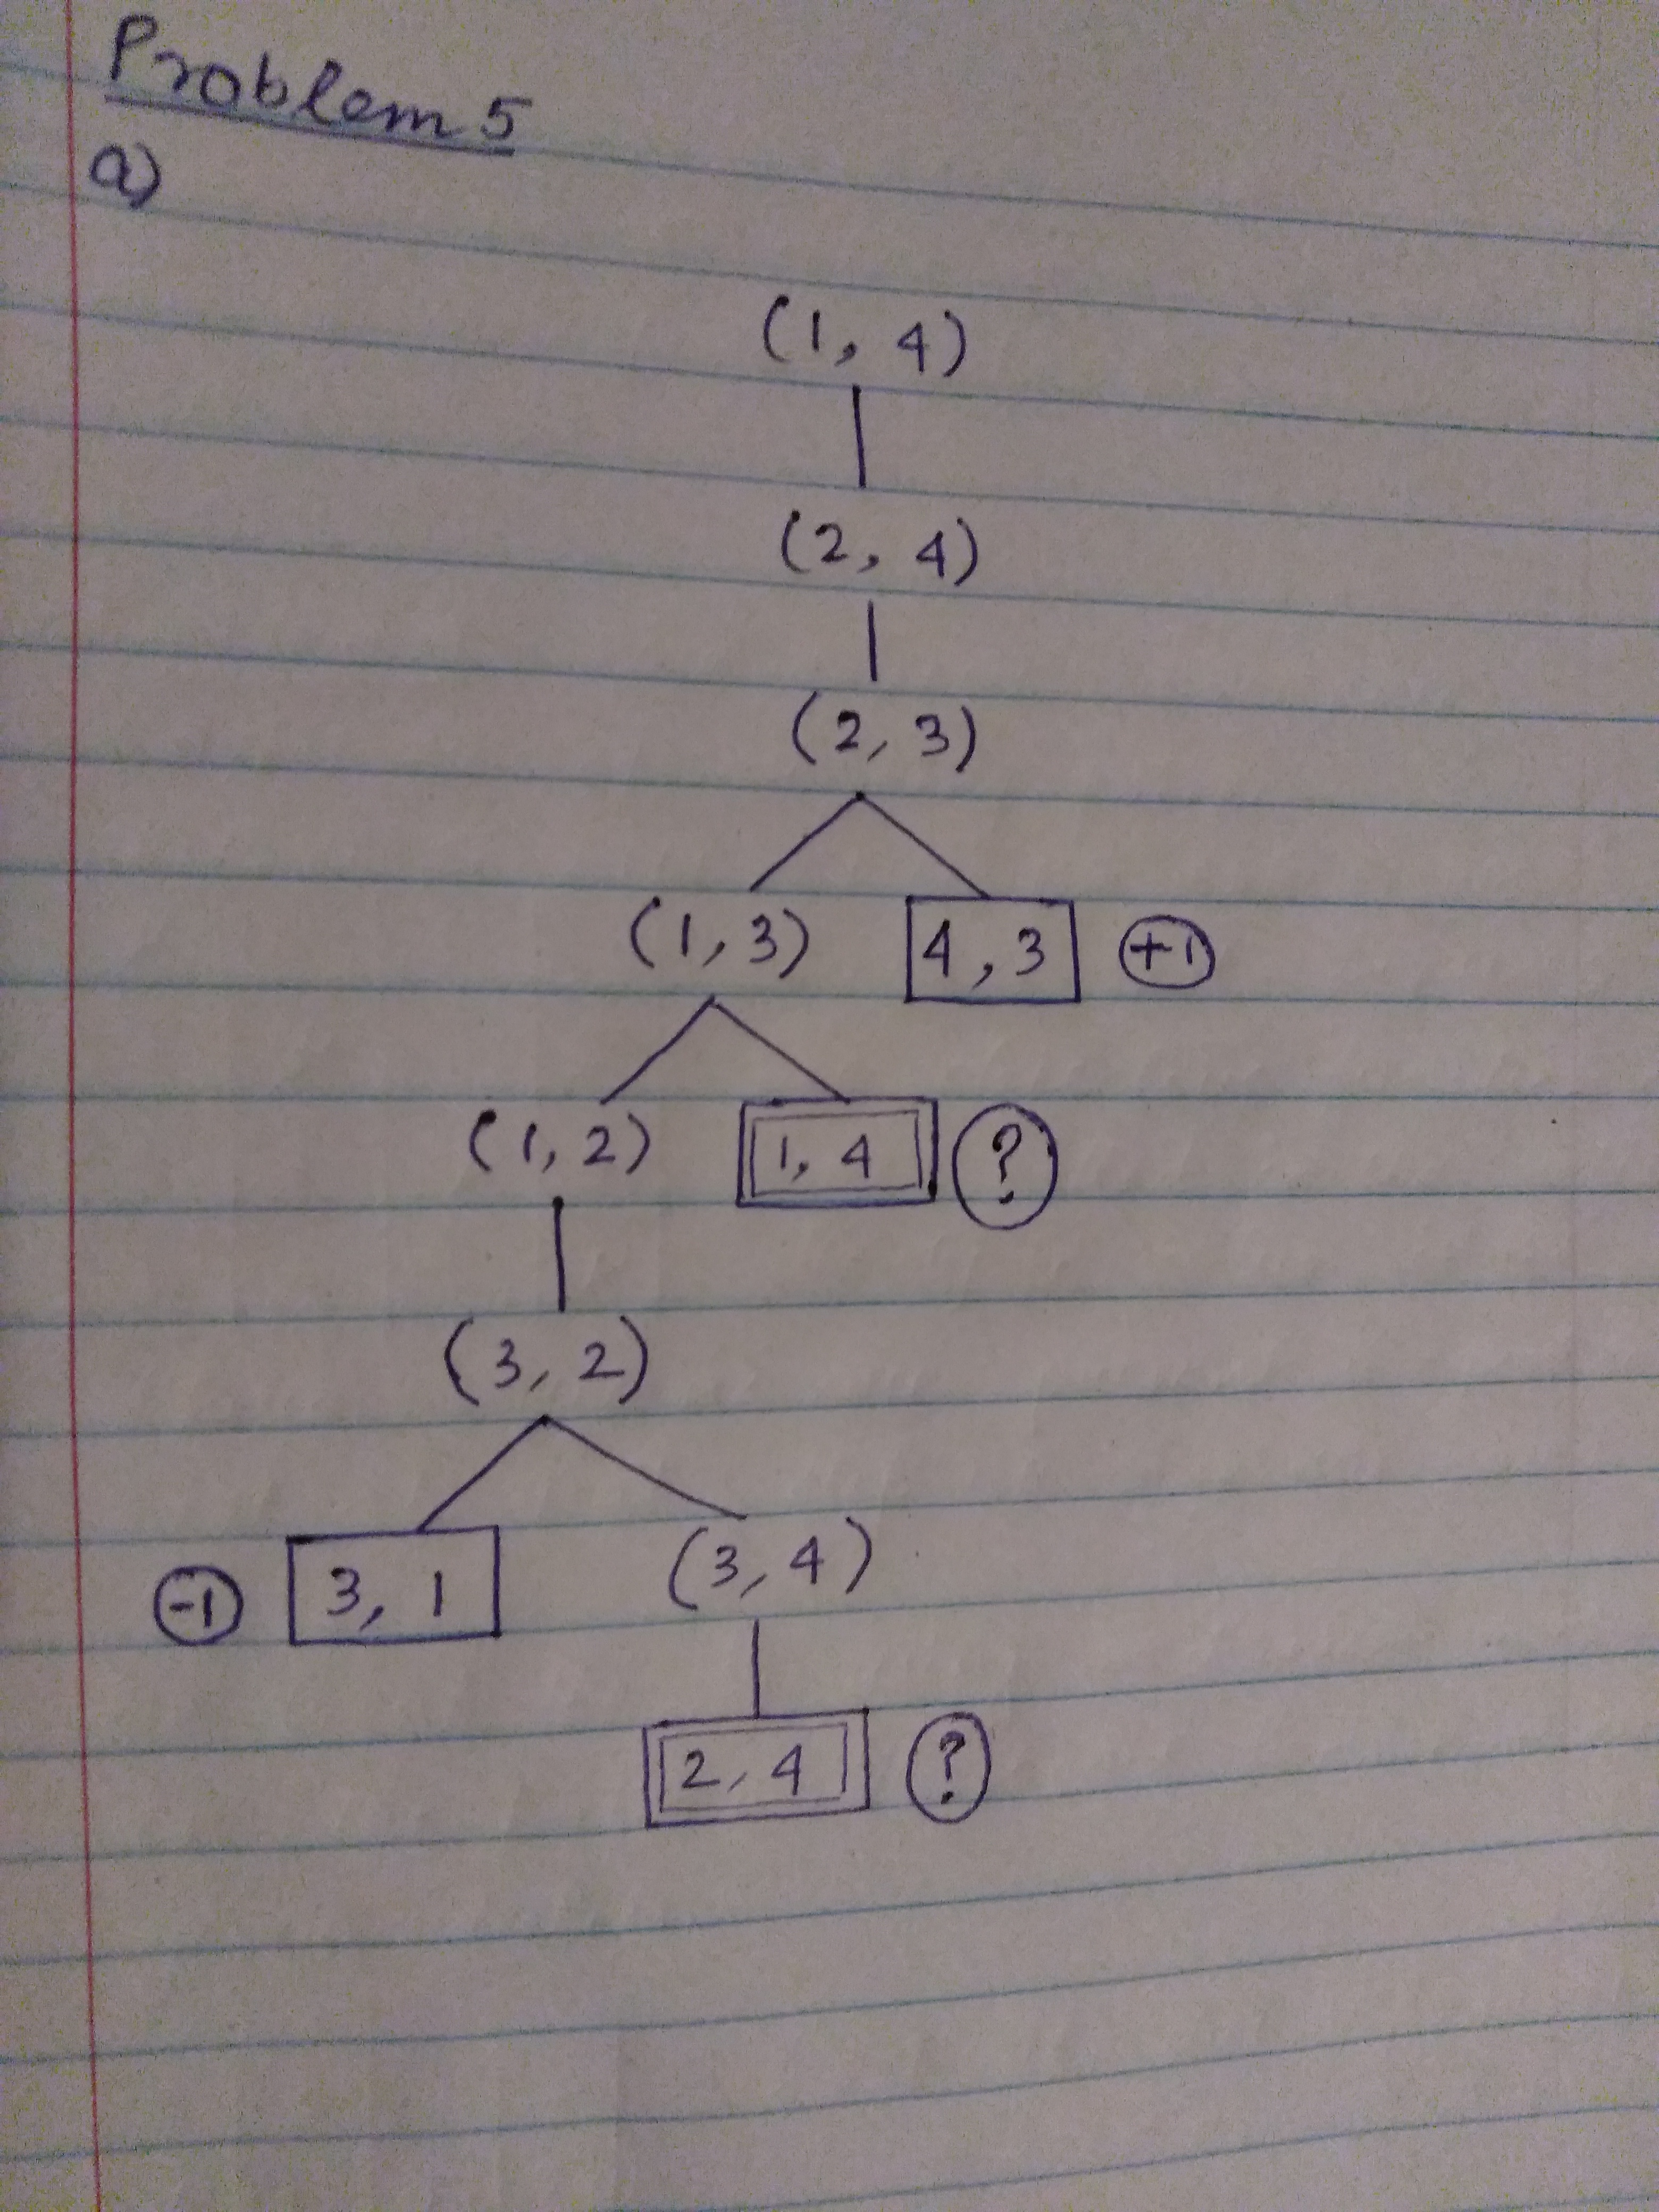 Problem 5
a)
(1, 4)
(2, 4)
(2, 3)
(1, 3) 4, 3 +1
(1, 2) 1, 4 ?
(3, 2)
-1 3, 1 (3, 4)
2, 4 ?